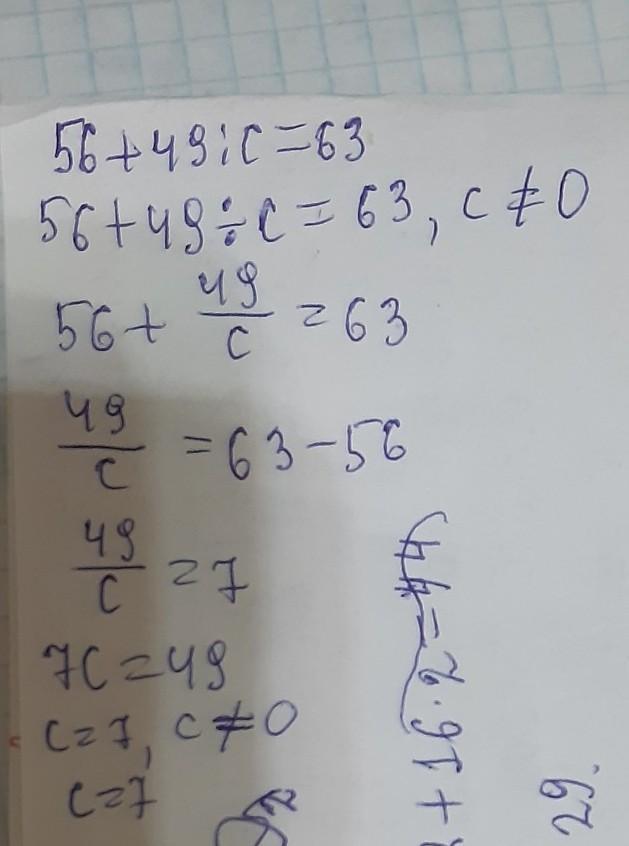 56+49:c=63
56+49÷c=63, c≠0
56+49/c=63
49/c=63-56
49/c=7
7c=49
c=7, c≠0
c=7
+16·2=44
29.